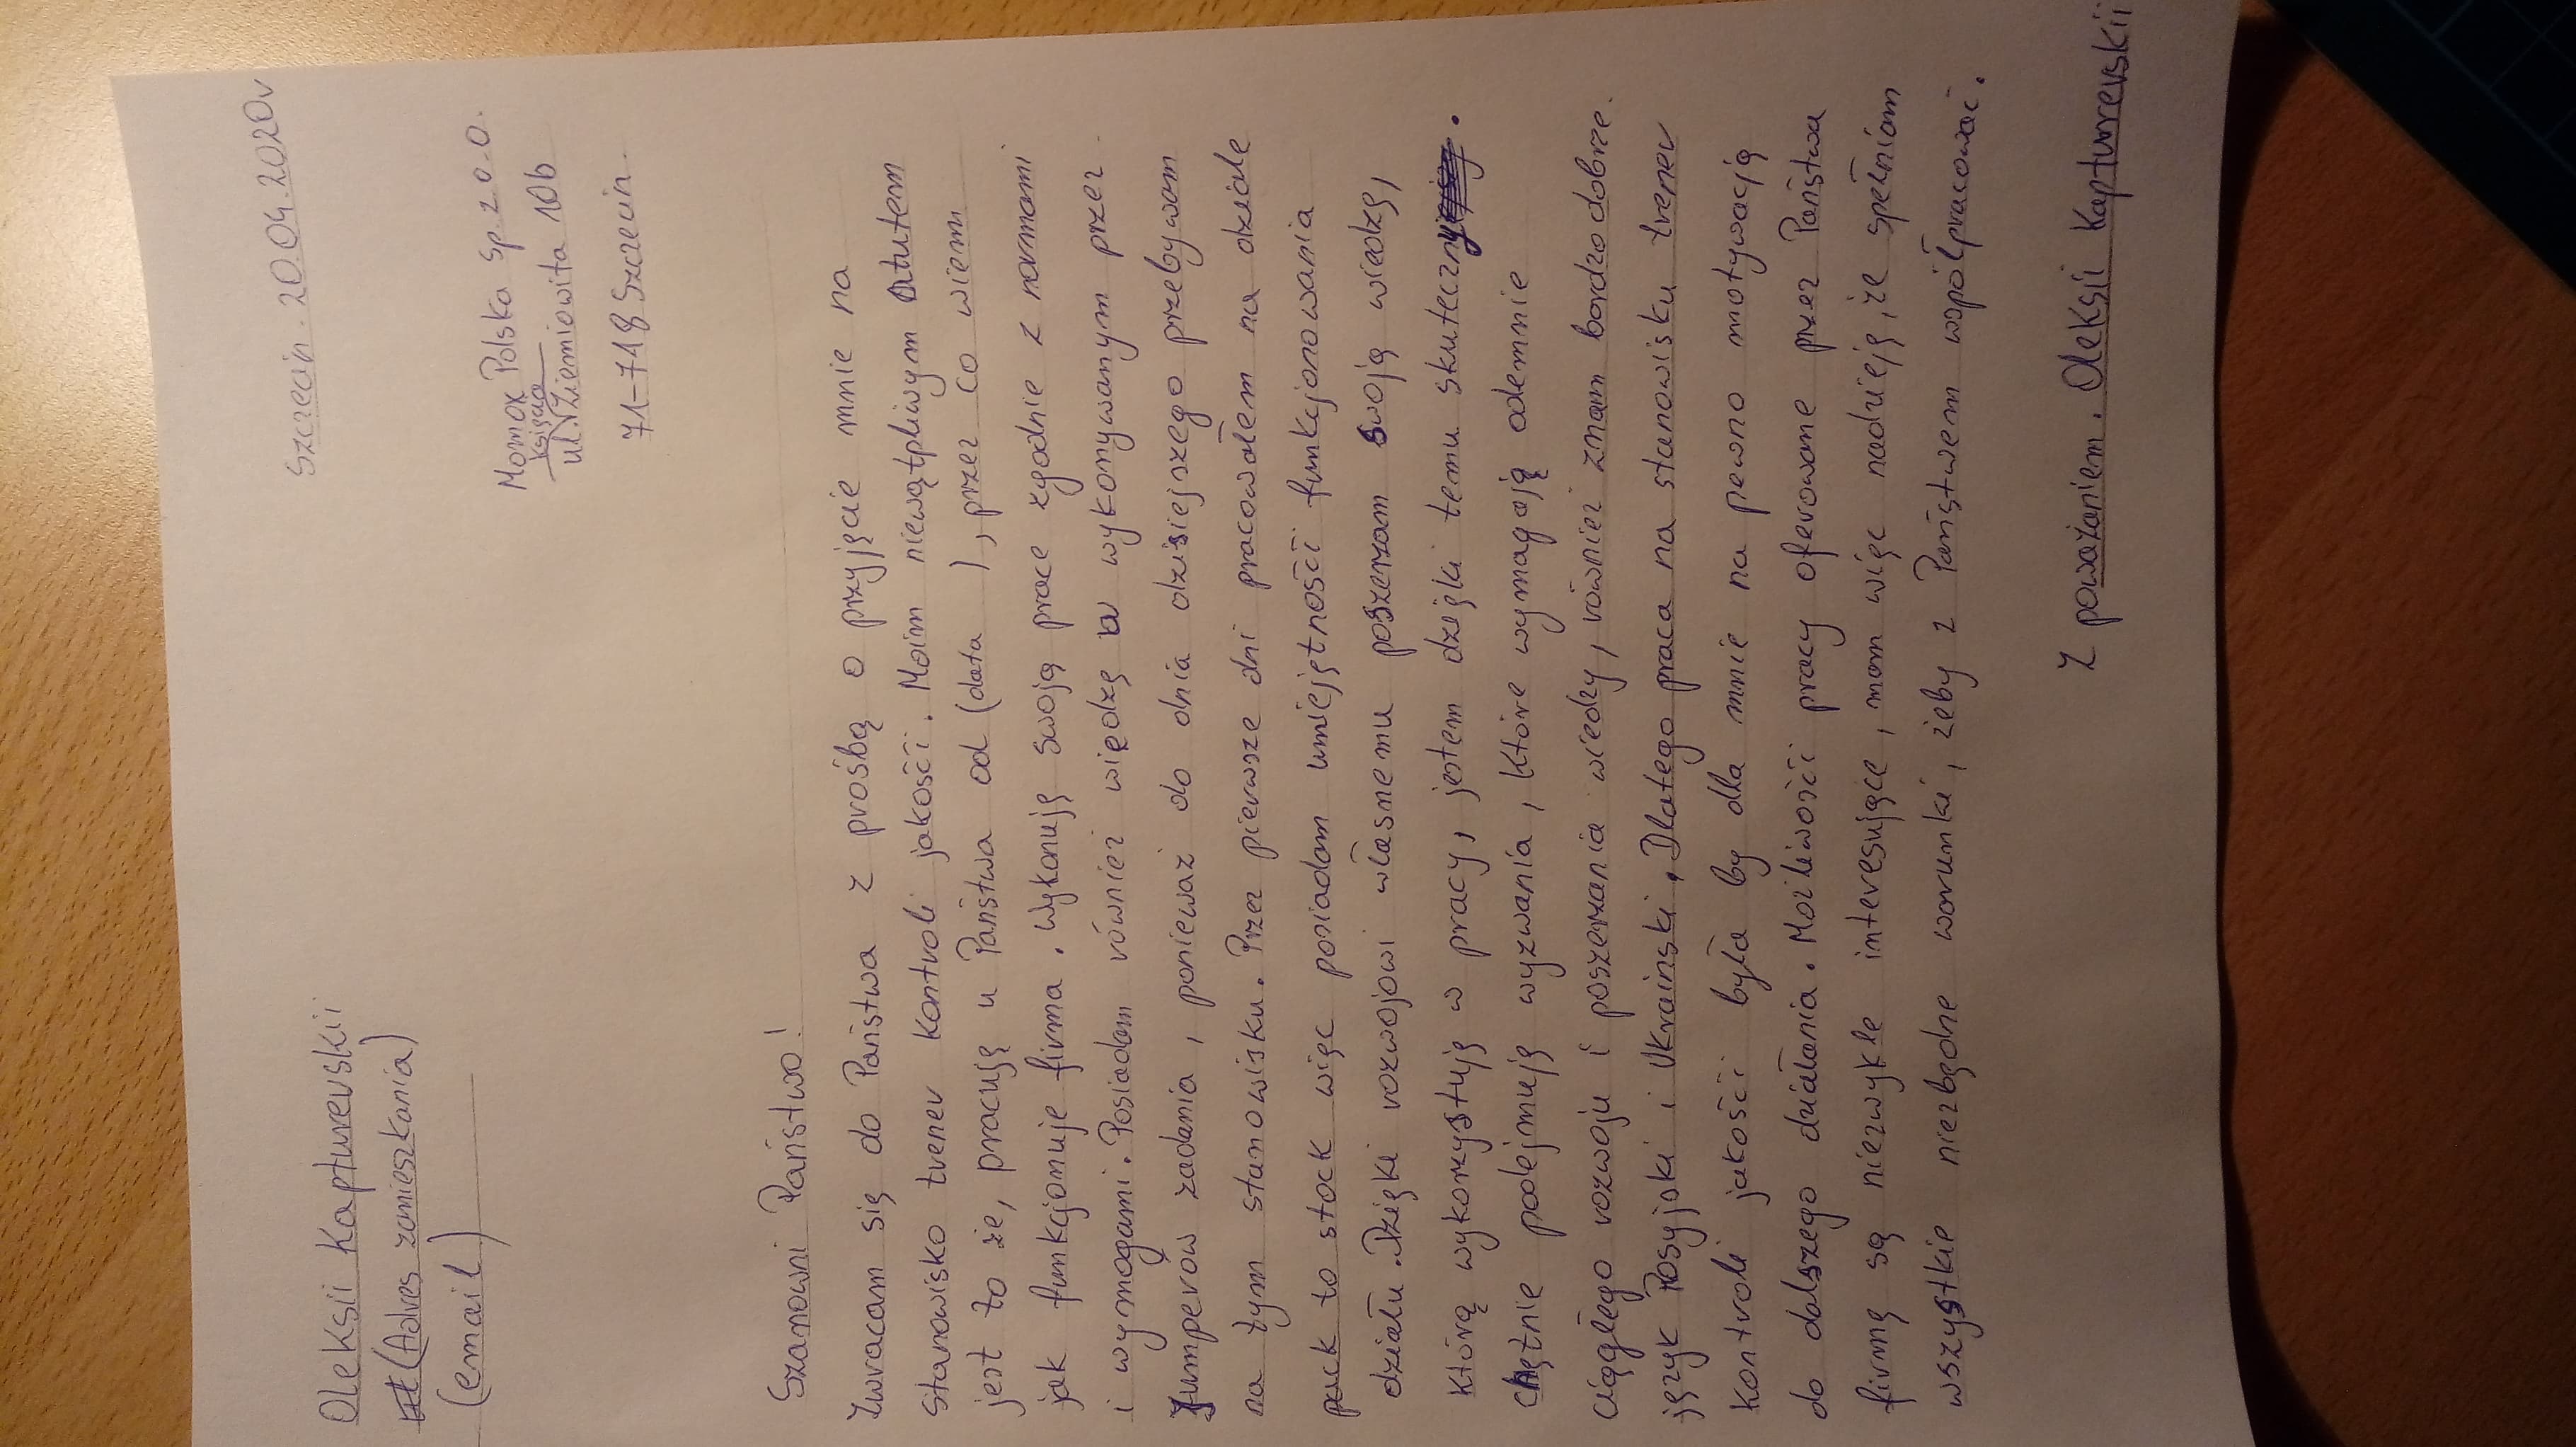 Szczecin. 20.04.2020r
Oleksii Kapturevskii
(Adres zamieszkania)
(email)
Momox Polska sp. z o.o.
księcia
ul. Ziemiowita 10b
71-718 Szczecin.
Szanowni Państwo!
Zwracam się do Państwa z prośbą o przyjęcie mnie na
stanowisko trener kontroli jakości. Moim niewątpliwym atutem
jest to że, pracuję u Państwa od (data ), przez co wiem
jak funkcjonuje firma. Wykonuję swoją prace zgodnie z normami
i wymogami. Posiadam również wiedzę w wykonywanym przez
Jumperów zadania, ponieważ do dnia dzisiejszego przebywam
na tym stanowisku. Przez pierwsze dni pracowałem na dziale
pack to stock więc posiadam umiejętności funkcjonowania
działu. Dzięki rozwojowi własnemu poszerzam swoją wiedzę,
którą wykorzystuję w pracy, jestem dzięki temu skuteczny.
Chętnie podejmuję wyzwania, które wymagają odemnie
ciągłego rozwoju i poszerzania wiedzy, również znam bardzo dobrze
język Rosyjski i Ukrainski. Dlatego praca na stanowisku trener
kontroli jakości była by dla mnie na pewno motywacją
do dalszego działania. Możliwości pracy oferowane przez Państwa
firmę są niezwykle interesujące, mam więc nadzieję, że spełniam
wszystkie niezbędne warunki, żeby z Państwem współpracować.
Z poważaniem. Oleksi Kapturevskii